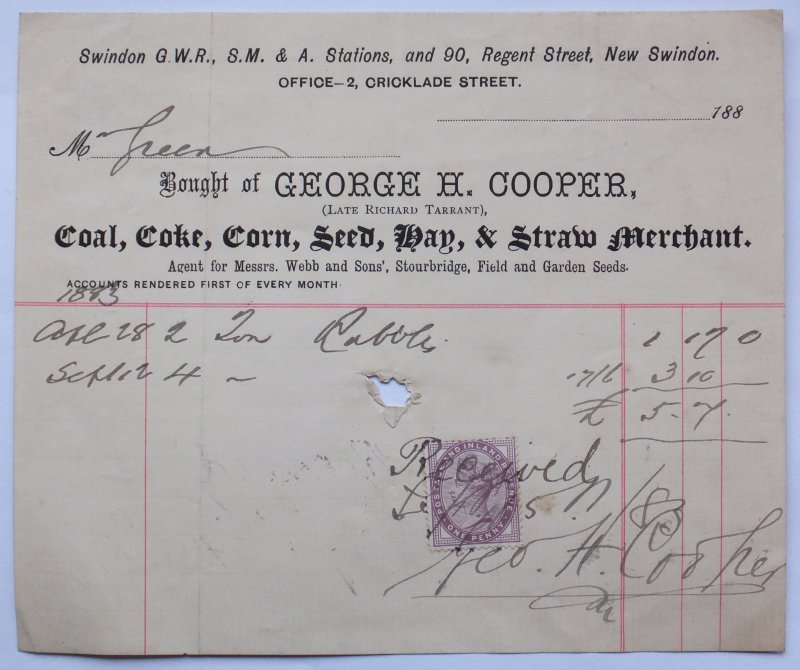 Swindon G.W.R., S.M. & A. Stations, and 90, Regent Street, New Swindon.
OFFICE—2, CRICKLADE STREET.
188
Mr Green
Bought of GEORGE H. COOPER,
(LATE RICHARD TARRANT),
Coal, Coke, Corn, Seed, Hay, & Straw Merchant.
Agent for Messrs. Webb and Sons', Stourbridge, Field and Garden Seeds.
ACCOUNTS RENDERED FIRST OF EVERY MONTH.
1893
Apl 28 2 Ton Cobbles 1 17 0
Sept 12 4 ~ 17/6 3 10
£ 5. 7.
Received
POSTAGE AND INLAND REVENUE
ONE PENNY
Geo. H. Cooper